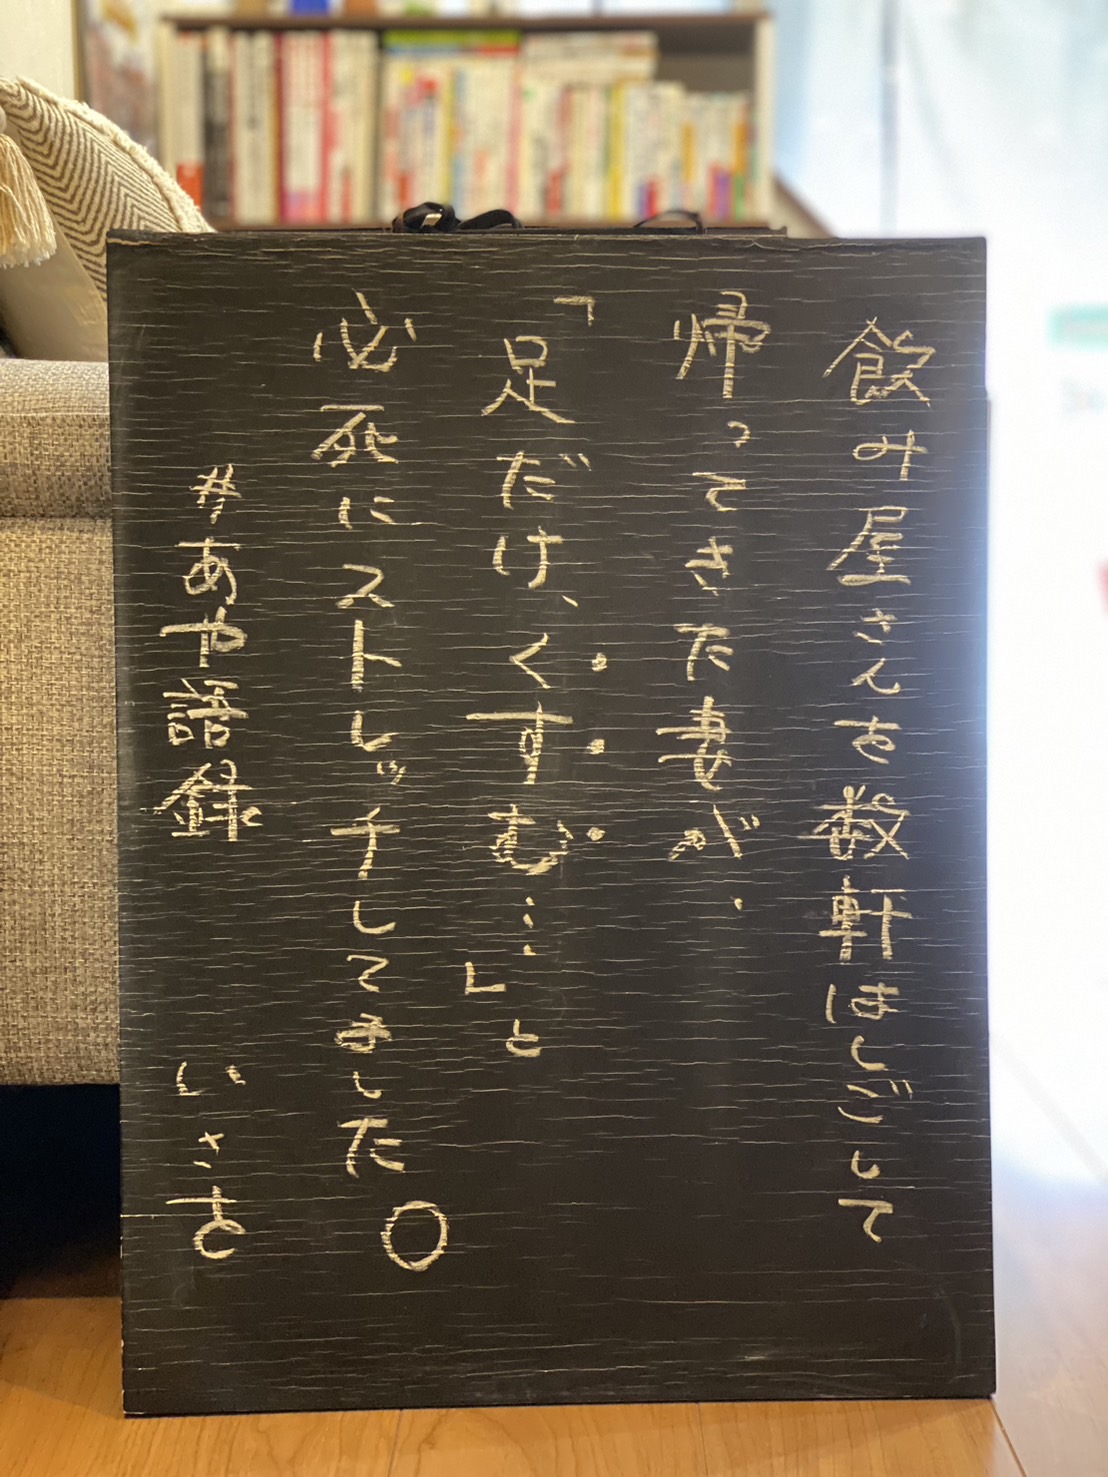 飲み屋さんを数軒はしごして
帰ってきた妻が、
「足だけ、くすむ…」と
必死にストレッチしてました○
#あや語録
いさを